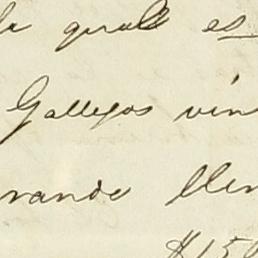 de qual es
Gallegos vin
rando llen
$150